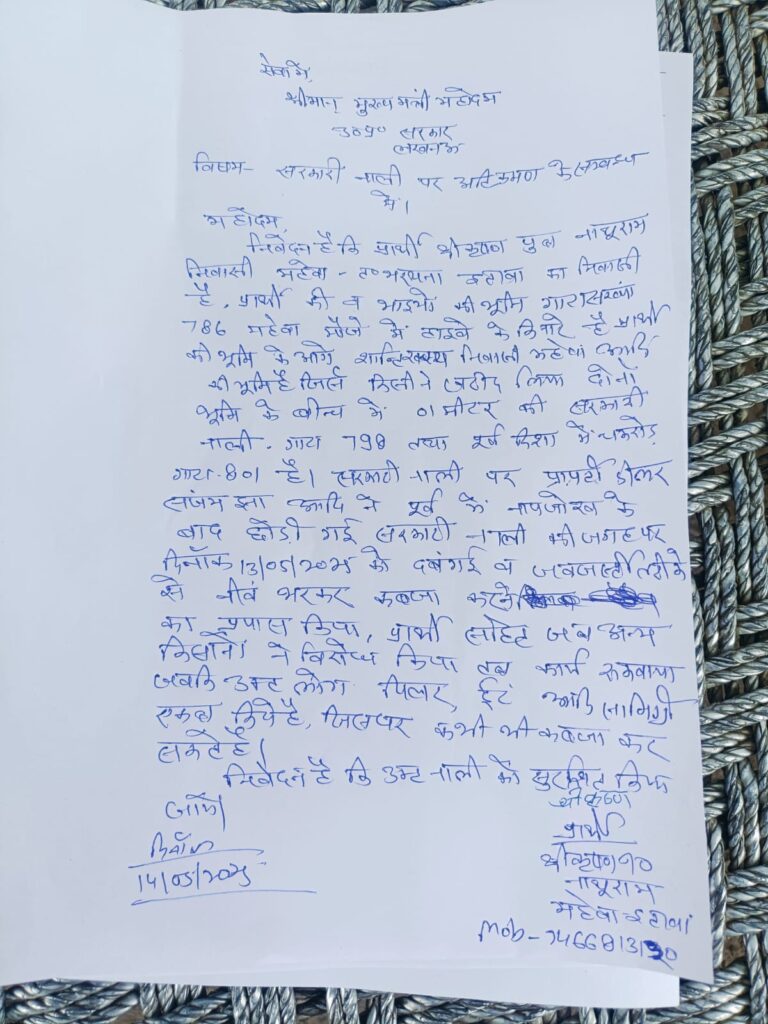 सेवा में,
श्रीमान् मुख्यमंत्री महोदय
उ०प्र० सरकार
लखनऊ
विषय- सरकारी नाली पर अतिक्रमण के सम्बन्ध
में।
महोदय,
निवेदन है कि प्रार्थी श्रीकृष्ण पुत्र नाथूराम
निवासी महेवा - त० भरथना इटावा का निवासी
है, प्रार्थी की व भाइयों की भूमि गाटा संख्या
786 महेवा मौजे में हाइवे के किनारे है प्रार्थी
की भूमि के आगे शान्तिस्वरूप निवासी महेवा आदि
की भूमि है जिसे किसी ने खरीद लिया दोनों
भूमि के बीच में 01 मीटर की सरकारी
नाली - गाटा 798 तथा पूर्व दिशा में चकरोड़
गाटा-801 है। सरकारी नाली पर प्रापर्टी डीलर
संजय झा आदि ने पूर्व में नापजोख के
बाद छोड़ी गई सरकारी नाली की जगह पर
दिनाँक 13/05/2025 को दबंगई व जबरजस्ती तरीके
से नीव भरकर कब्जा करने
का प्रयास किया, प्रार्थी सहित जब अन्य
किसानों ने विरोध किया तब कार्य रुकवाया
जबकि उक्त लोग पिलर, ईंट आदि सामिग्री
एकत्र किये है, जिसपर कभी भी कब्जा कर
सकते है।
निवेदन है कि उक्त नाली को सुरक्षित किया
जाये।
श्रीकृष्ण
प्रार्थी
दिनाँक
14/05/2025
श्रीकृष्ण पु०
नाथूराम
महेवा इटावा
Mob -